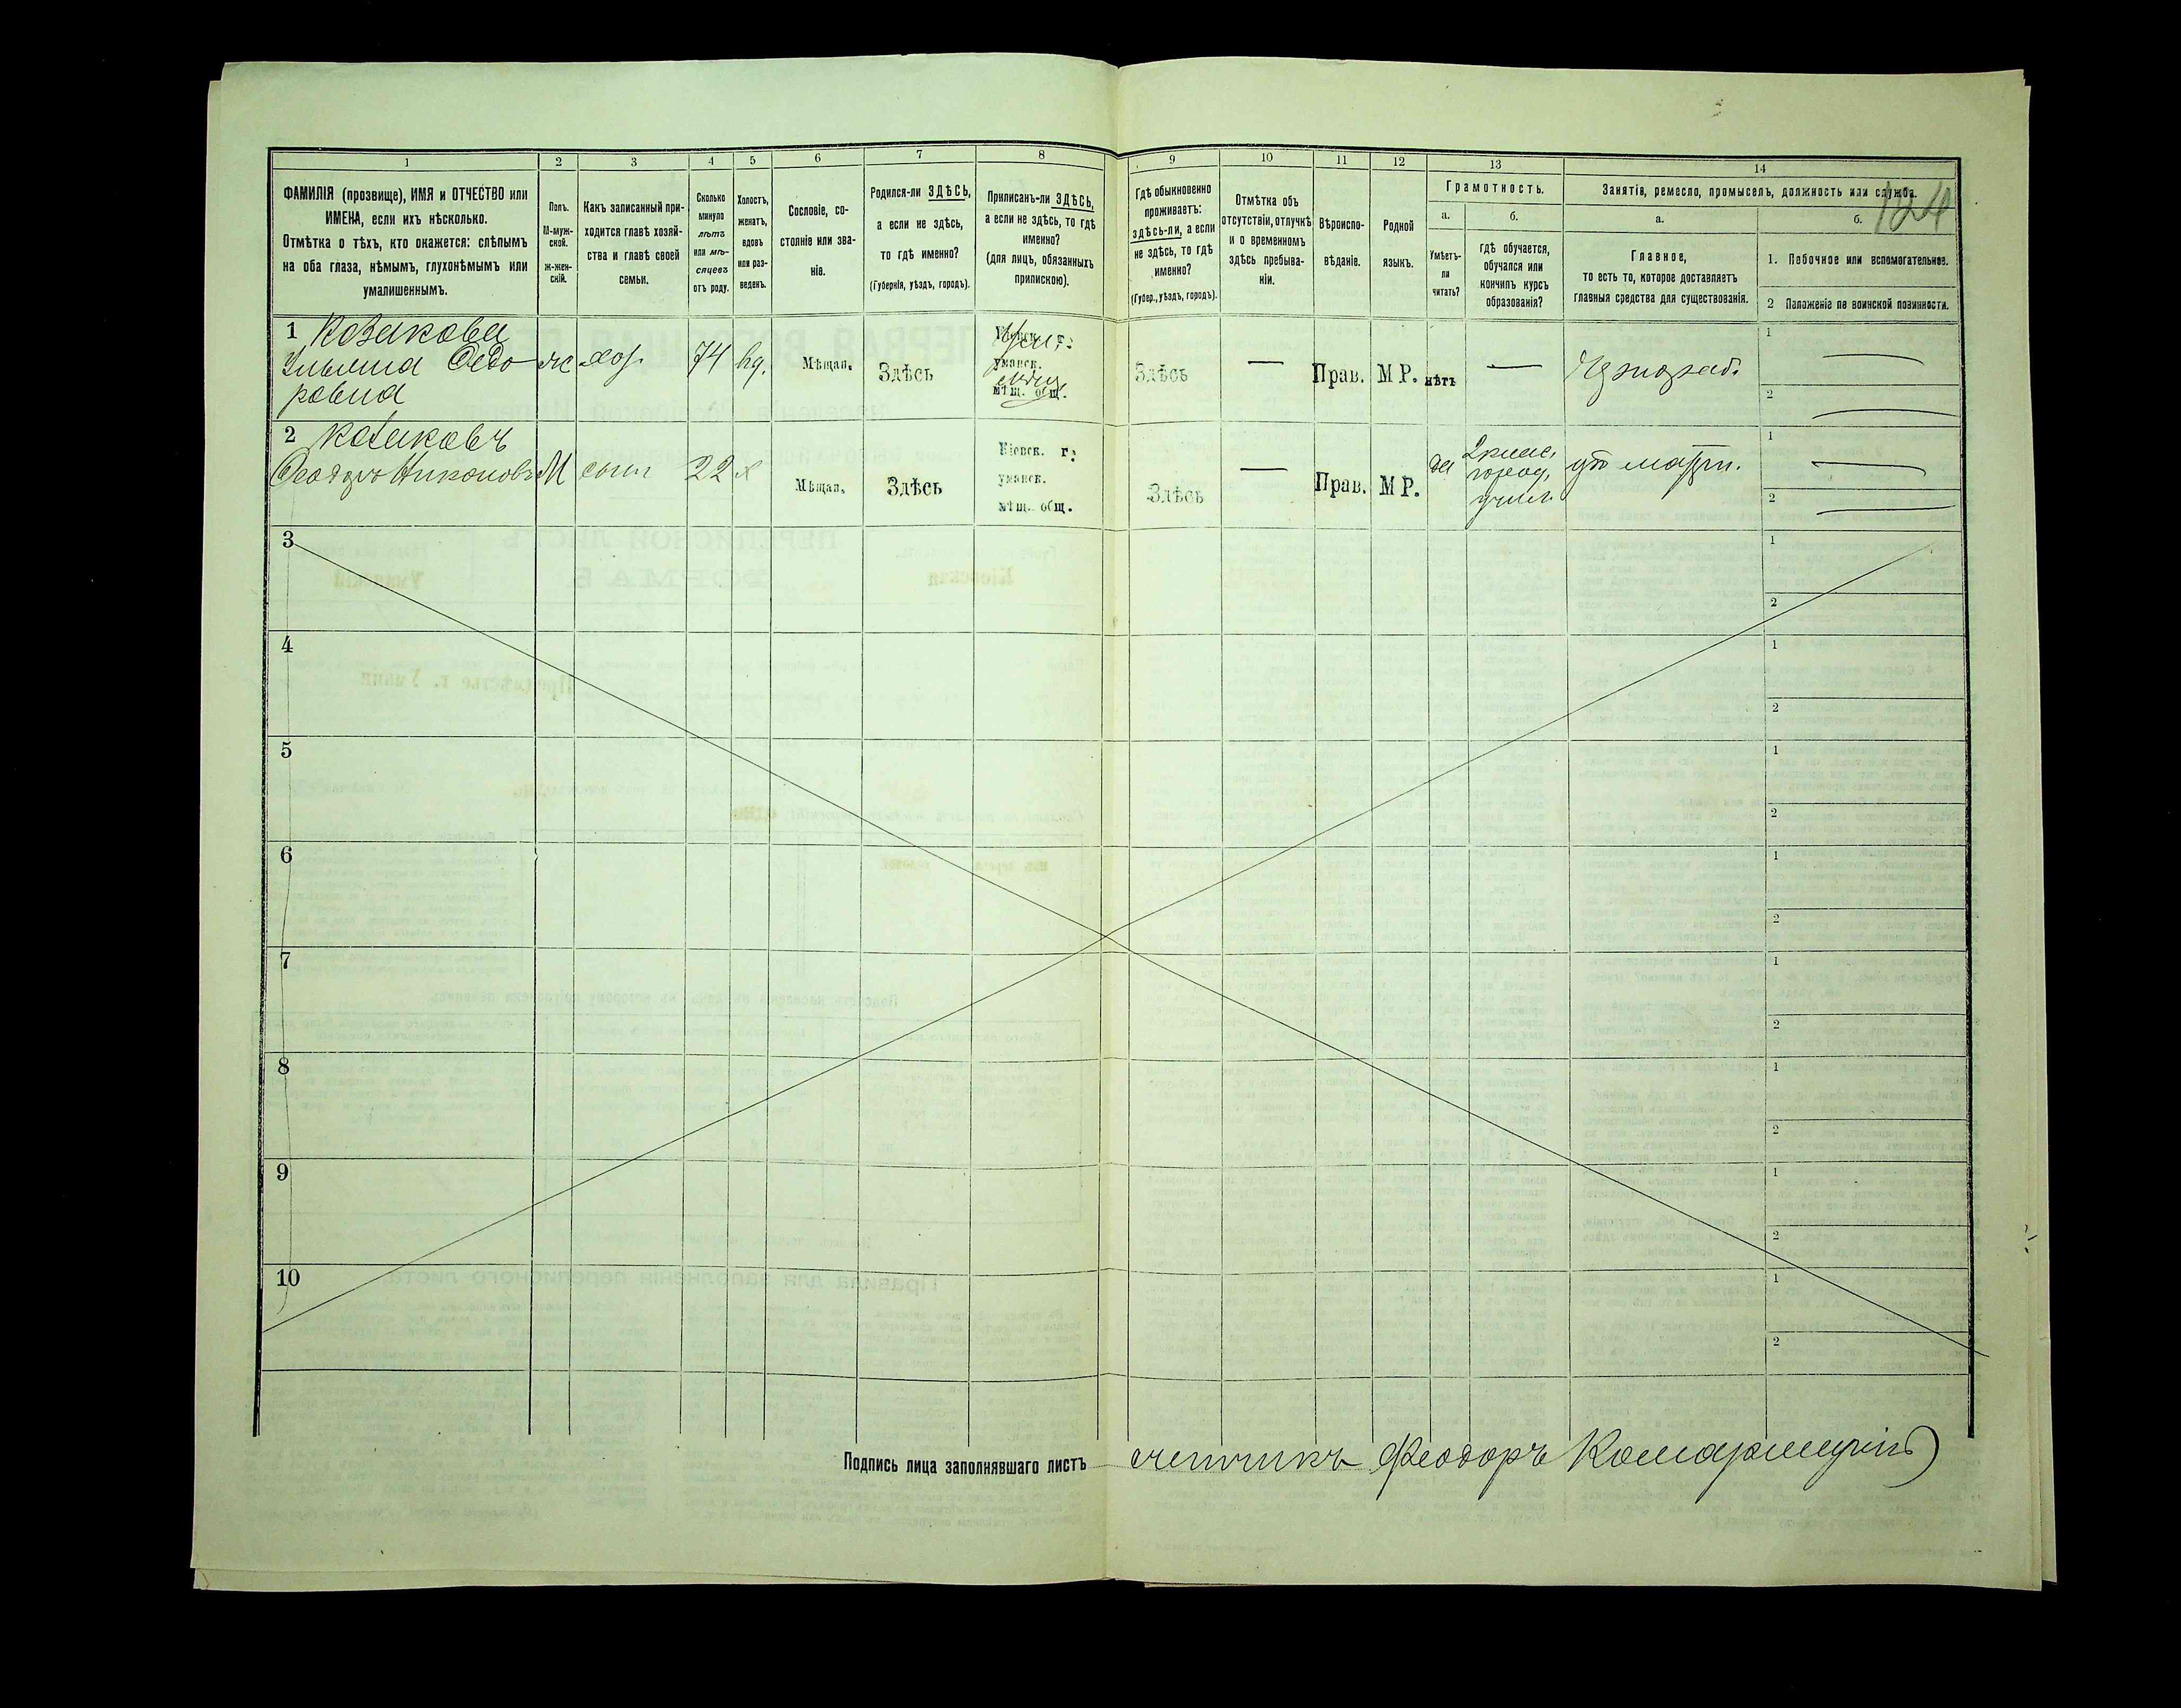 124
1
2
3
4
5
6
7
8
9
10
11
12
13
14
ФАМИЛІЯ (прозвище), ИМЯ и ОТЧЕСТВО или
ИМЕНА, если ихъ нѣсколько.
Отмѣтка о тѣхъ, кто окажется: слѣпымъ
на оба глаза, нѣмымъ, глухонѣмымъ или
умалишеннымъ.
Полъ.
М-муж-
ской.
ж-жен-
скій.
Какъ записанный при-
ходится главѣ хозяй-
ства и главѣ своей
семьи.
Сколько
минуло
лѣтъ
или мѣ-
сяцевъ
отъ роду.
Холостъ,
женатъ,
вдовъ
или раз-
веденъ.
Сословіе, со-
стояніе или зва-
ніе.
Родился-ли ЗДѢСЬ,
а если не здѣсь,
то гдѣ именно?
(Губернія, уѣздъ, городъ).
Приписанъ-ли ЗДѢСЬ,
а если не здѣсь, то гдѣ
именно?
(для лицъ, обязанныхъ
припискою).
Гдѣ обыкновенно
проживаетъ:
здѣсь-ли, а если
не здѣсь, то гдѣ
именно?
(Губер., уѣздъ, городъ).
Отмѣтка объ
отсутствіи, отлучкѣ
и о временномъ
здѣсь пребыва-
ніи.
Вѣроиспо-
вѣданіе.
Родной
языкъ.
Грамотность.
а.
Умѣетъ-
ли
читать?
б.
гдѣ обучается,
обучался или
кончилъ курсъ
образованія?
Занятія, ремесло, промыселъ, должность или служба.
а.
Главное,
то есть то, которое доставляетъ
главныя средства для существованія.
б.
1. Побочное или вспомогательное.
2 Положеніе по воинской повинности.
1 Козакова
Ульяна Федо
ровна
ж
хоз.
74
вд.
Мѣщан.
Здѣсь
уманск.
мѣщ. общ.
Здѣсь
—
Прав.
МР.
нѣтъ
—
1 —
2 —
2 Козаковъ
Феодоръ Никоновъ
М
сынъ
22
х
Мѣщан.
Здѣсь
Кіевск. г.
уманск.
мѣщ. общ.
Здѣсь
—
Прав.
МР.
да
2 клас.
город.
учил.
1 —
2 —
3
1
2
4
1
2
5
1
2
6
1
2
7
1
2
8
1
2
9
1
2
10
1
2
Подпись лица заполнявшаго листъ счетчикъ Феодоръ